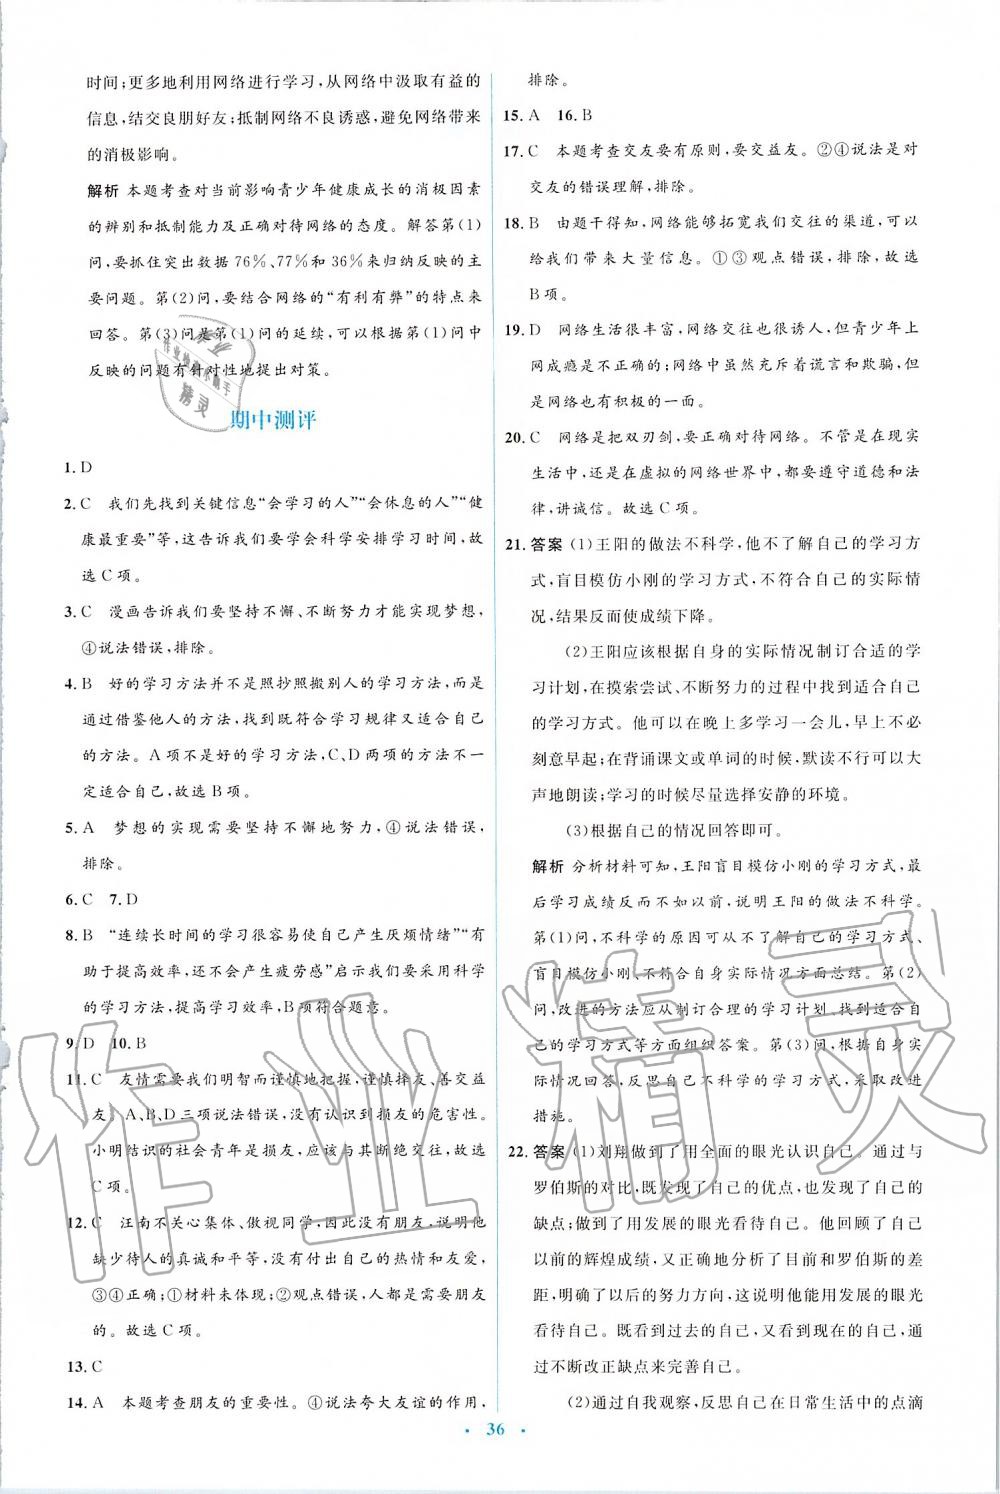 时间;更多地利用网络进行学习,从网络中汲取有益的
信息,结交良朋好友;抵制网络不良诱惑,避免网络带来
的消极影响。
解析 本题考查对当前影响青少年健康成长的消极因素
的辨别和抵制能力及正确对待网络的态度。解答第(1)
问,要抓住突出数据76%、77%和36%来归纳反映的主
要问题。第(2)问,要结合网络的“有利有弊”的特点来
回答。第(3)问是第(1)问的延续,可以根据第(1)问中
反映的问题有针对性地提出对策。
期中测评
1. D
2. C 我们先找到关键信息“会学习的人”“会休息的人”“健
康最重要”等,这告诉我们要学会科学安排学习时间,故
选C项。
3. C 漫画告诉我们要坚持不懈、不断努力才能实现梦想,
④说法错误,排除。
4. B 好的学习方法并不是照抄照搬别人的学习方法,而是
通过借鉴他人的方法,找到既符合学习规律又适合自己
的方法。A项不是好的学习方法,C、D两项的方法不一
定适合自己,故选B项。
5. A 梦想的实现需要坚持不懈地努力,④说法错误,
排除。
6. C 7. D
8. B “连续长时间的学习很容易使自己产生厌烦情绪”“有
助于提高效率,还不会产生疲劳感”启示我们要采用科学
的学习方法,提高学习效率,B项符合题意。
9. D 10. B
11. C 友情需要我们明智而谨慎地把握,谨慎择友、善交益
友,A、B、D三项说法错误,没有认识到损友的危害性。
小明结识的社会青年是损友,应该与其断绝交往,故选
C项。
12. C 汪南不关心集体、傲视同学,因此没有朋友,说明他
缺少待人的真诚和平等,没有付出自己的热情和友爱,
③④正确;①材料未体现;②观点错误,人都是需要朋友
的。故选C项。
13. C
14. A 本题考查朋友的重要性。④说法夸大友谊的作用,
排除。
15. A 16. B
17. C 本题考查交友要有原则,要交益友。②④说法是对
交友的错误理解,排除。
18. B 由题干得知,网络能够拓宽我们交往的渠道,可以
给我们带来大量信息。①③观点错误,排除,故选
B项。
19. D 网络生活很丰富,网络交往也很诱人,但青少年上
网成瘾是不正确的;网络中虽然充斥着谎言和欺骗,但
是网络也有积极的一面。
20. C 网络是把双刃剑,要正确对待网络。不管是在现实
生活中,还是在虚拟的网络世界中,都要遵守道德和法
律,讲诚信。故选C项。
21. 答案 (1)王阳的做法不科学,他不了解自己的学习方
式,盲目模仿小刚的学习方式,不符合自己的实际情
况,结果反而使成绩下降。
(2)王阳应该根据自身的实际情况制订合适的学
习计划,在摸索尝试、不断努力的过程中找到适合自己
的学习方式。他可以在晚上多学习一会儿,早上不必
刻意早起;在背诵课文或单词的时候,默读不行可以大
声地朗读;学习的时候尽量选择安静的环境。
(3)根据自己的情况回答即可。
解析 分析材料可知,王阳盲目模仿小刚的学习方式,最
后学习成绩反而不如以前,说明王阳的做法不科学。
第(1)问,不科学的原因可从不了解自己的学习方式、
盲目模仿小刚、不符合自身实际情况等方面总结。第(2)
问,改进的方法应从制订合理的学习计划、找到适合自
己的学习方式等方面组织答案。第(3)问,根据自身实
际情况回答,反思自己不科学的学习方式,采取改进
措施。
22. 答案 (1)刘翔做到了用全面的眼光认识自己。通过与
罗伯斯的对比,既发现了自己的优点,也发现了自己的
缺点;做到了用发展的眼光看待自己。他回顾了自己
以前的辉煌成绩,又正确地分析了目前和罗伯斯的差
距,明确了以后的努力方向,这说明他能用发展的眼光
看待自己。既看到过去的自己,又看到现在的自己,通
过不断改正缺点来完善自己。
(2)通过自我观察,反思自己在日常生活中的点滴
36
作业精灵